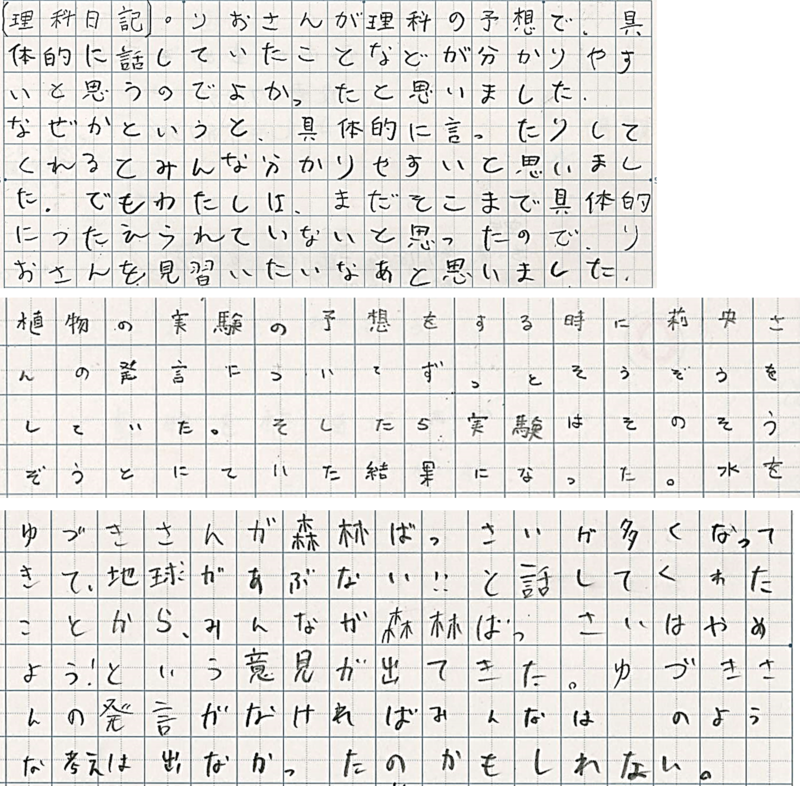 [理科日記]。りおさんが理科の予想で、具
体的に話していたことなどが分かりやす
いと思うのでよかったと思いました.
なぜかというと、具体的に言ったりして
くれるとみんな分かりやすいと思いまし
た.でもわたしは、まだそこまで具体的
につたえられていないと思ったので、り
おさんを見習いたいなあと思いました.
植物の実験の予想をする時に莉央さ
んの発言についてずっとそうぞうを
していた。そしたら実験はそのそう
ぞうとにていた結果になった。水を
ゆづきさんが森林ばっさいが多くなって
きて、地球があぶない!!と話してくれた
ことから、みんなが森林ばっさいはやめ
よう!という意見が出てきた。ゆづきさ
んの発言がなければみんなは のよう
な考えは出なかったのかもしれない。